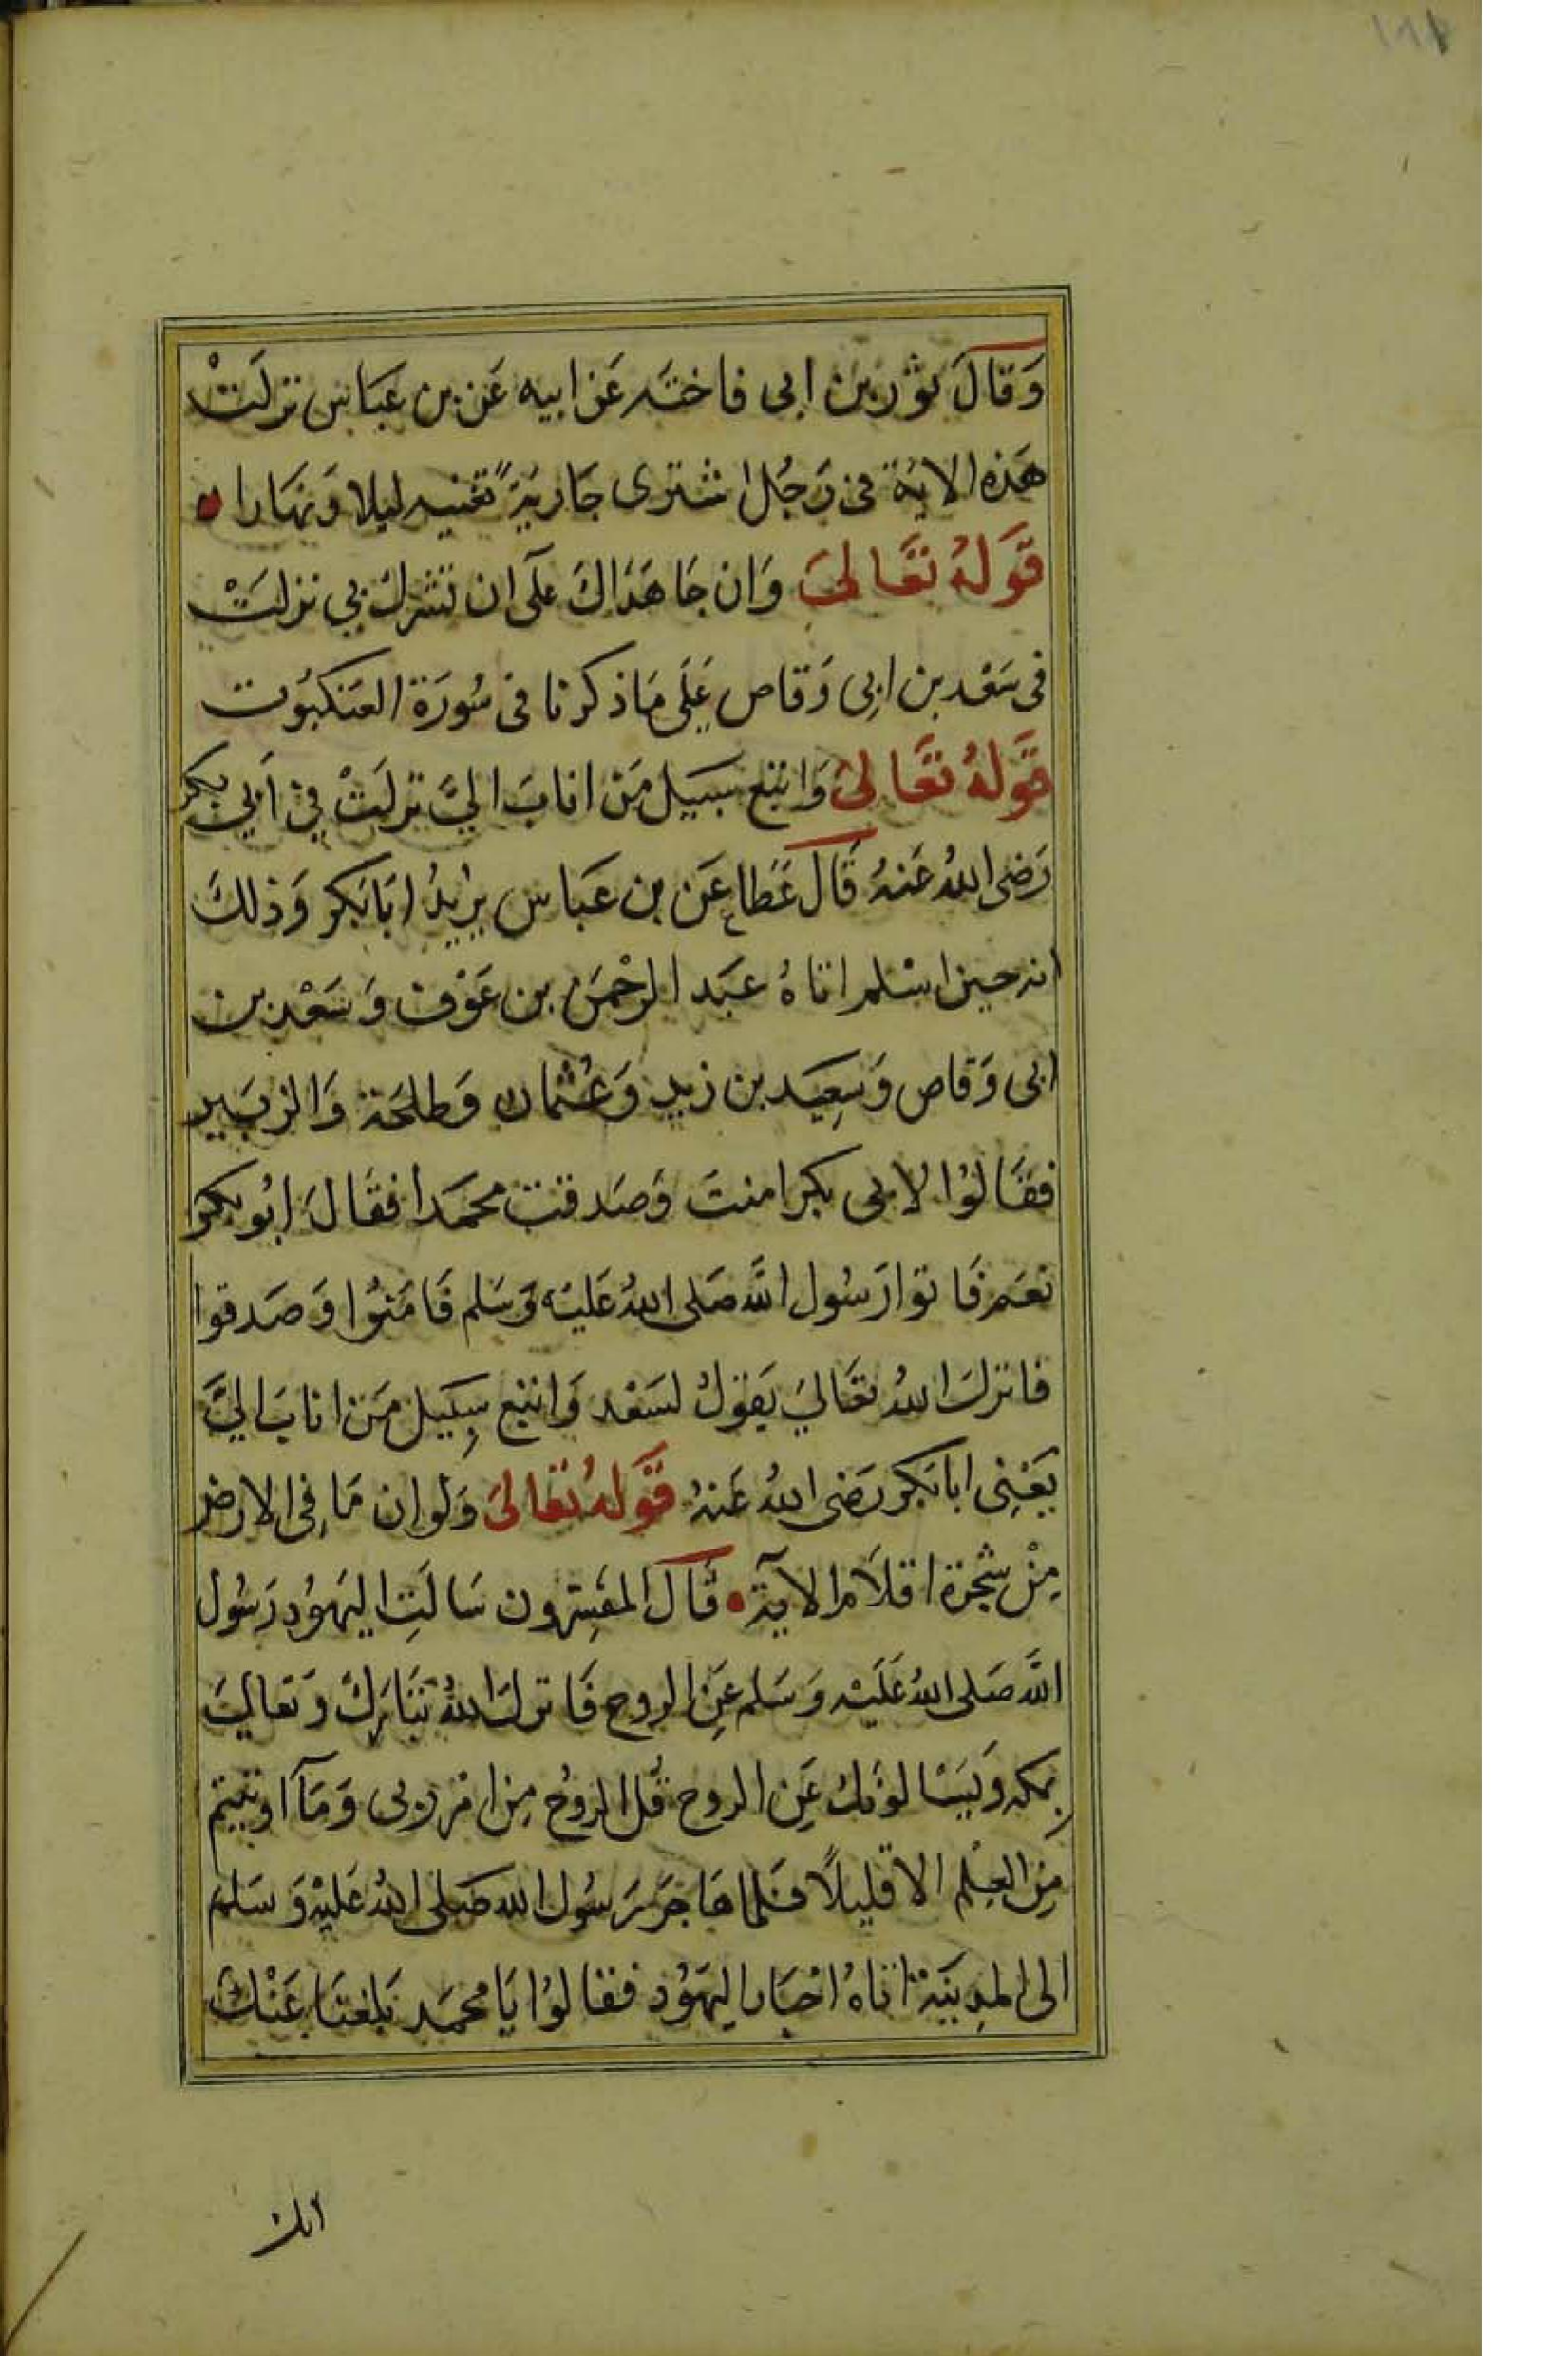 وَقَالَ ثور بن ابى فاخته عَن ابيه عَن بن عَبَاس نزلَتْ
هَذه الاية فى رَجُل اشترى جَاريَةً تغنيه ليلا وَنهَارا
قَولهُ تعَالىَ وَان جَاهَدَاكَ عَلَى ان تشرك بي نزلَتْ
فى سَعْد بن ابِى وَقاص عَلَى مَا ذكرنا فى سُورَة العَنكبُوت
قَولهُ تعَالىَ وَاتبع سَبيل مَن انابَ اليَّ نزلَتْ فِي اَبِي بكر
رَضى اللهُ عَنهُ قَالَ عَطاء عَن بن عَبَاس يرُيدُ ابَا بَكر وَذلكَ
انه حين اسْلم اتاهُ عَبَد الرحْمَن بن عَوْف وَسَعْد بن
ابى وَقاص وَسِعيَد بن زيد وَعُثمان وَطلحَة وَالزبَير
فقَالوُا لابى بكر امنتَ وَصَدقت محمَدا فقَالَ ابُو بكر
نعَم فَاتوا رَسُول اللَّه صَلى اللهُ عَليَه وَسَلم فَامَنوُا وَصَدقوا
فانزلَ اللهُ تعَالىَ يَقوُلُ لسَعْد وَاتبع سَبِيل مَن انابَ اليَّ
يَعْنِى ابا بَكر رَضى اللهُ عَنهُ قَولهُ تعَالىَ وَلو ان مَا فِى الارض
مِنْ شجَرة اقلاَم الآية قَالَ المفَسِرون سَالَتِ اليهَوُد رَسُول
اللَّه صَلى اللهُ عَلَيْه وَسَلم عَنِ الروح فَانزلَ اللهُ تبَارَكَ وَتعَاليَ
بمكه وَيَسْالونكَ عَنِ الروح قُل الروُح مِن امْر ربى وَمَآ اوتيتم
مِن العِلْم الا قليلاً فَلما هَاجَر رَسُول الله صَلى اللهُ عَليْه وَسَلم
الى المدِينَة اتاهُ احْبَار اليهَوُد فقالوُا يَا محمَد بَلغنَا عَنْكَ
انك